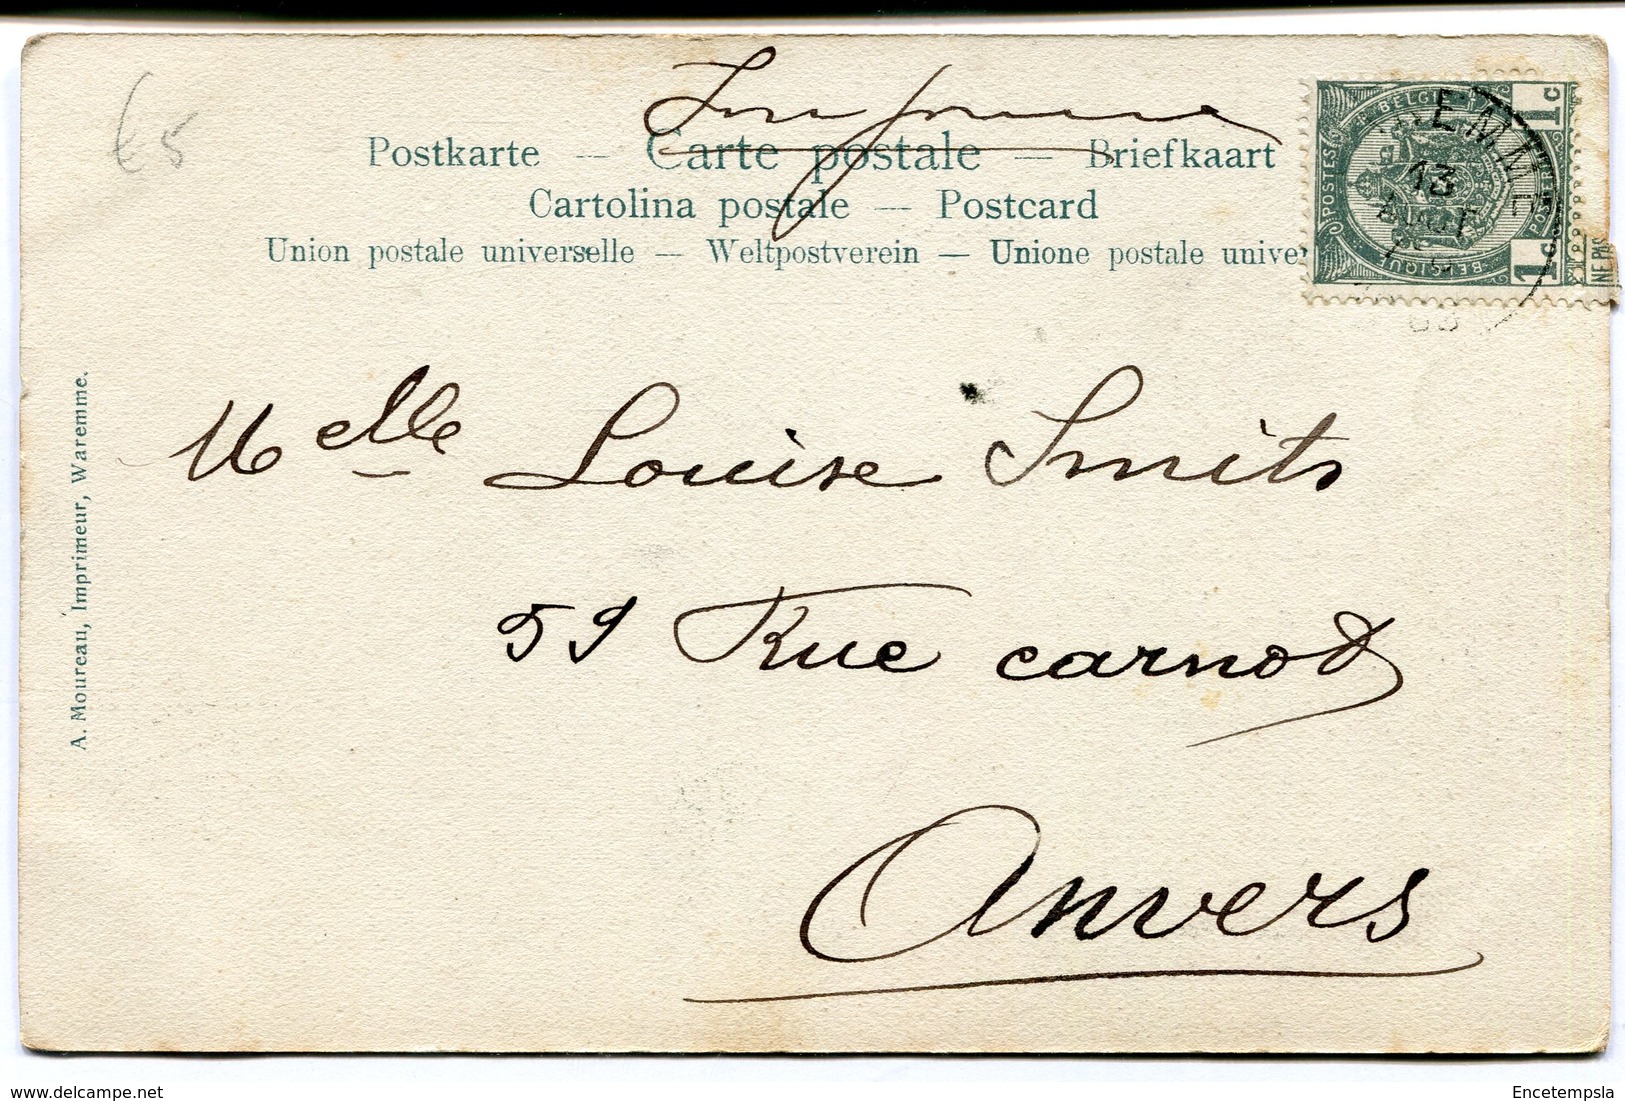 Imprimé
€5
Postkarte — Carte postale — Briefkaart
Cartolina postale — Postcard
Union postale universelle — Weltpostverein — Unione postale univer
POSTES BELGIQUE 1c
1c BELGIQUE
13
AOUT
NEPAS
Melle Louise Smits
59 Rue carnot
Anvers
A. Moureau, Imprimeur, Waremme.
delcampe.net
Encetempsla